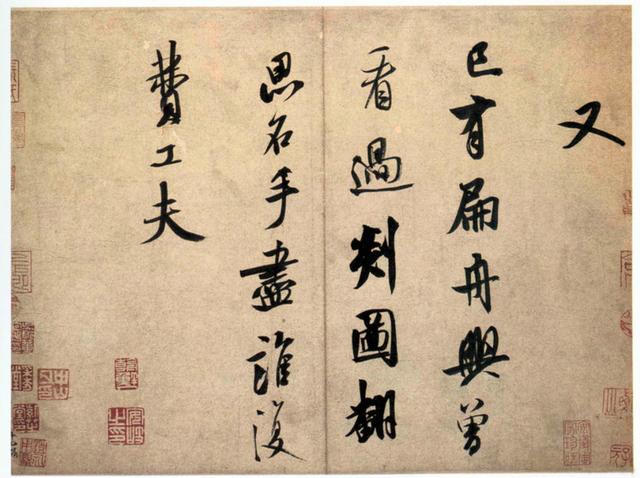 又
已有扁舟興曾
看過剡圖翻
思名手盡誰復
費工夫